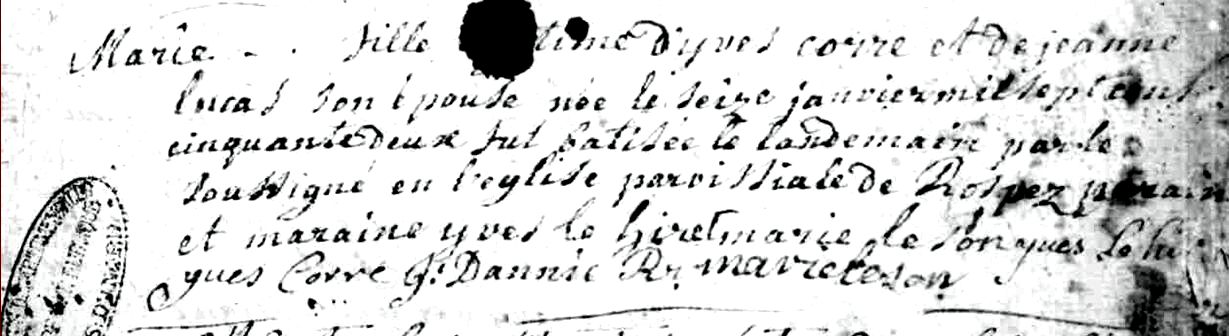 Marie fille d'yves corre et de jeanne
lucas son épouse née le seize janvier mil sept cens
cinquante deux fut batisée le landemain par le
soussigné en l'eglise paroissiale de Rospez parain
et maraine yves le hiret marie le son yves le hi
yves Corre Dannic Rr marie le son